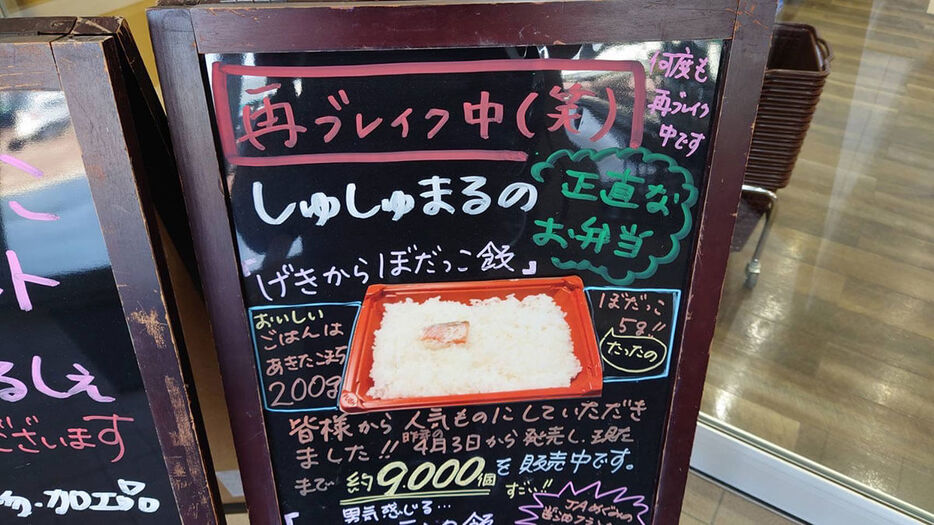 再ブレイク中(笑)
何度も
再ブレイク
中です
しゅしゅまるの
正直な
お弁当
「げきからぼだっこ飯」
おいしい
ごはんは
あきたこまち
200g
ぼだっこ
5g!!
たったの
皆様から人気ものにしていただき
ました!! 昨年4月3日から発売し、現在
まで約9,000個を販売中です。
すごい!!
男気感じる…
JAめぐみの
ざいます